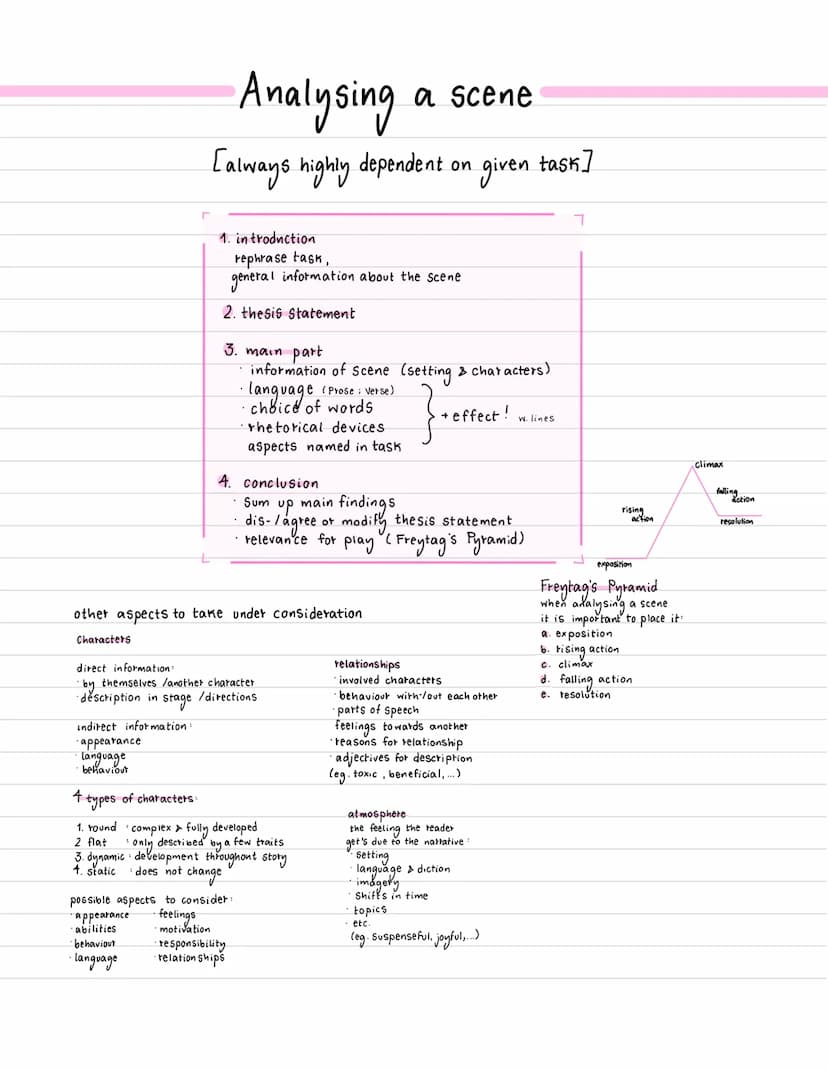 Analysing a scene
[always highly dependent on given task]
1. introduction
rephrase task,
general information about the scene
2. thesis statement
3. main part
· information of scene (setting & characters)
· language (Prose ; Verse)
· choice of words
· rhetorical devices
aspects named in task
→ effect! w. lines
4. conclusion
· sum up main findings
· dis-/agree or modify thesis statement
· relevance for play (Freytag's Pyramid)
climax
falling
action
rising
action
resolution
exposition
Freytag's Pyramid
when analysing a scene
it is important to place it:
a. exposition
b. rising action
c. climax
d. falling action
e. resolution
other aspects to take under consideration
Characters
direct information:
· by themselves /another character
· description in stage /directions
indirect information:
· appearance
· language
· behaviour
relationships
· involved characters
· behaviour with-/out each other
· parts of speech
feelings towards another
· reasons for relationship
· adjectives for description
(eg. toxic, beneficial, ...)
4 types of characters:
1. round : complex & fully developed
2 flat : only described by a few traits
3. dynamic : development throughout story
4. static : does not change
possible aspects to consider:
· appearance · feelings
· abilities · motivation
· behaviour · responsibility
· language · relationships
atmosphere
the feeling the reader
get's due to the narrative:
· setting
· language & diction
· imagery
· shifts in time
· topics
· etc.
(eg. suspenseful, joyful,...)